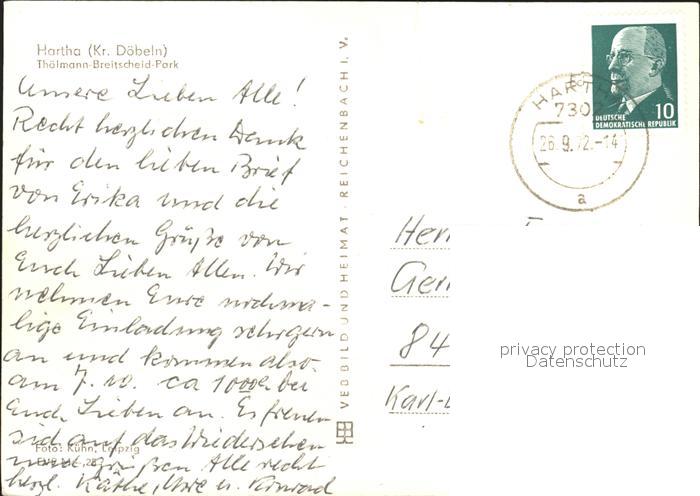 Hartha (Kr. Döbeln)
Thälmann-Breitscheid-Park
Unsere Lieben Alle!
Recht herzlichen Dank
für den lieben Brief
von Erika und die
herzlichen Grüße von
Euch Lieben Allen. Wir
nehmen Eure nochma-
lige Einladung sehr gern
an und kommen also
am 7. 10. ca 10 bei
Euch Lieben an. Es freuen
sich auf das Wiedersehen
grüßen Alle recht
herzl. Käthe, u. Konrad
Foto: Kühn, Leipzig
VEB BILD UND HEIMAT · REICHENBACH I. V.
HARTHA
7302
26.9.72.-14
a
10
DEUTSCHE
DEMOKRATISCHE REPUBLIK
Her
Ger
84
Karl-
privacy protection
Datenschutz